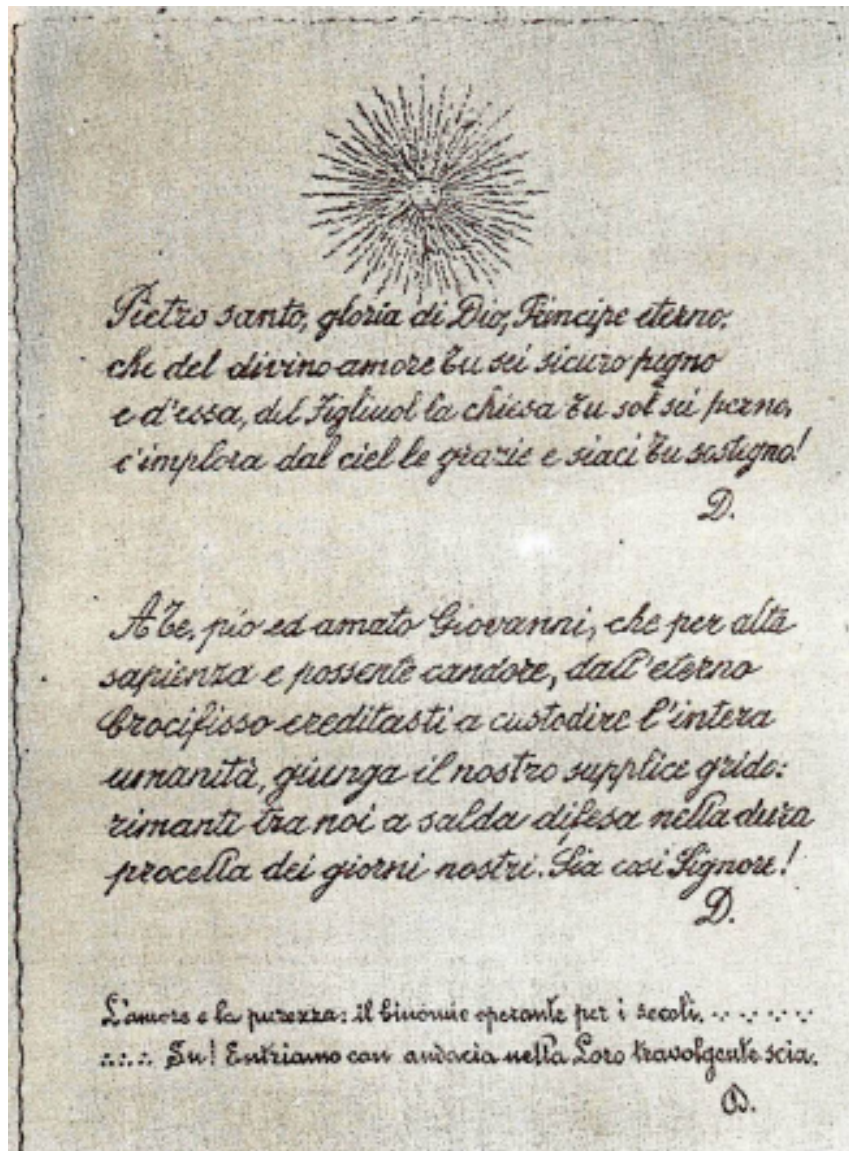 Pietro santo, gloria di Dio, Principe eterno,
che del divino amore tu sei sicuro pegno
e d'essa, del Figliuol la chiesa tu sol sei perno,
c'implora dal ciel le grazie e siaci tu sostegno!
D.
A Te, pio ed amato Giovanni, che per alta
sapienza e possente candore, dall'eterno
Crocifisso ereditasti a custodire l'intera
umanità, giunga il nostro supplice grido:
rimanti tra noi a salda difesa nella dura
procella dei giorni nostri. Sia così Signore!
D.
L'amore e la purezza: il binomio operante per i secoli. .·.·.·.
.·.·. Su! Entriamo con audacia nella Loro travolgente scia.
D.